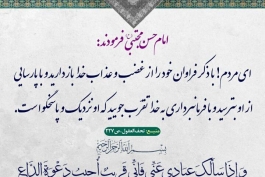 امام حسن مجتبی فرمودند:
ای مردم! با ذکر فراوان خود را از غضب و عذاب خدا بازدارید و با پارسایی
از او بترسید و با فرمانبرداری به خدا تقرب جویید که او نزدیک و پاسخگو است.
منبع: تحف‌العقول، ص ۲۲۷
بسم الله الرحمن الرحیم
وَإِذَا سَأَلَكَ عِبَادِي عَنِّي فَإِنِّي قَرِيبٌ أُجِيبُ دَعْوَةَ الدَّاعِ